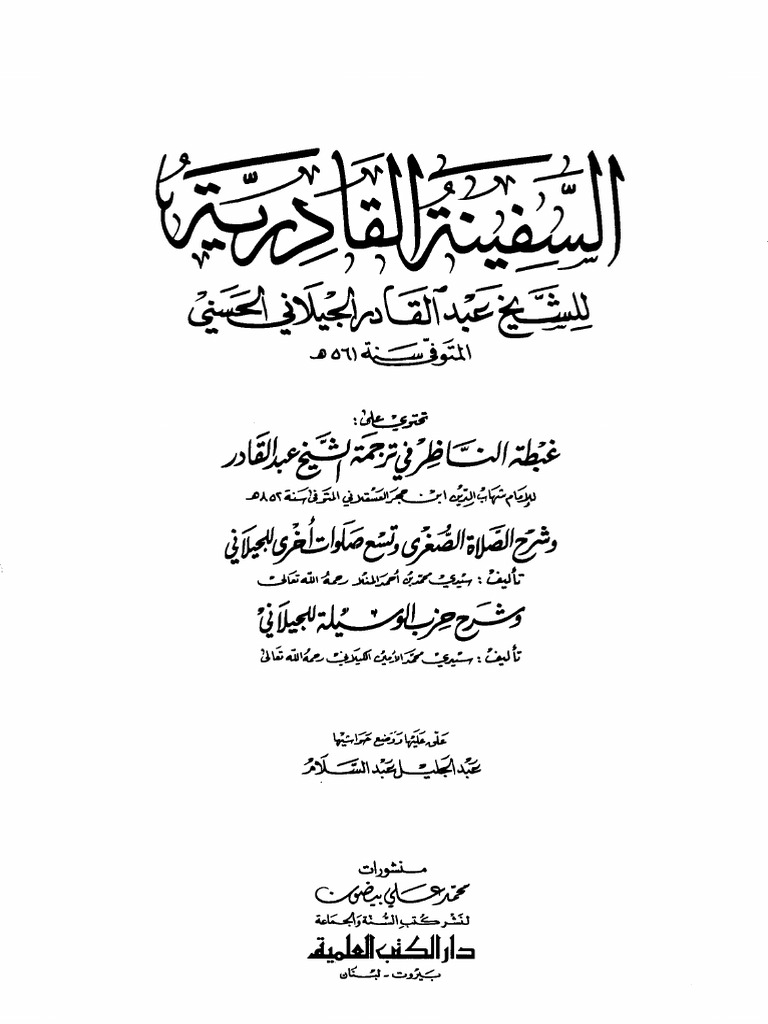 السَّفِينَةُ القَادِرِيَّةُ
للشَّيخ عَبْد القَادر الجيلَاني الحَسَني
المتَوفّى سَنة ٥٦١ هـ
تحتوي على:
غبْطة النَّاظِر في ترجمَة الشَّيخ عَبد القَادر
للإمَام شهَاب الدِّين ابن حجر العَسقلاني المتوفى سَنة ٨٥٢ هـ
وشرَح الصَّلاة الصُّغرى وتسْع صَلوات أُخرى للجيلَاني
تأليف: سيّدي محمّد بن أحمد المنلا رحمهُ الله تعَالى
وشرح حزب الوسيلة للجيلَاني
تأليف: سيّدي محمّد الأمين الكيلاني رحمهُ الله تعَالى
علّق عليها ووضع حَواشيها
عَبد الجَليل عَبد السَّلام
منشورات
محمّد عَلي بيضون
لنَشر كتب السُّنة والجمَاعة
دار الكتب العلمية
بَيروت - لبنَان